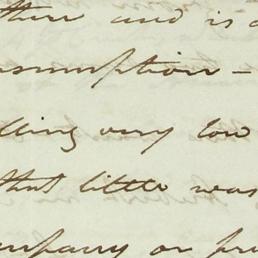 then and is a
nsumption –
lling very low
that little was
mpany or pro